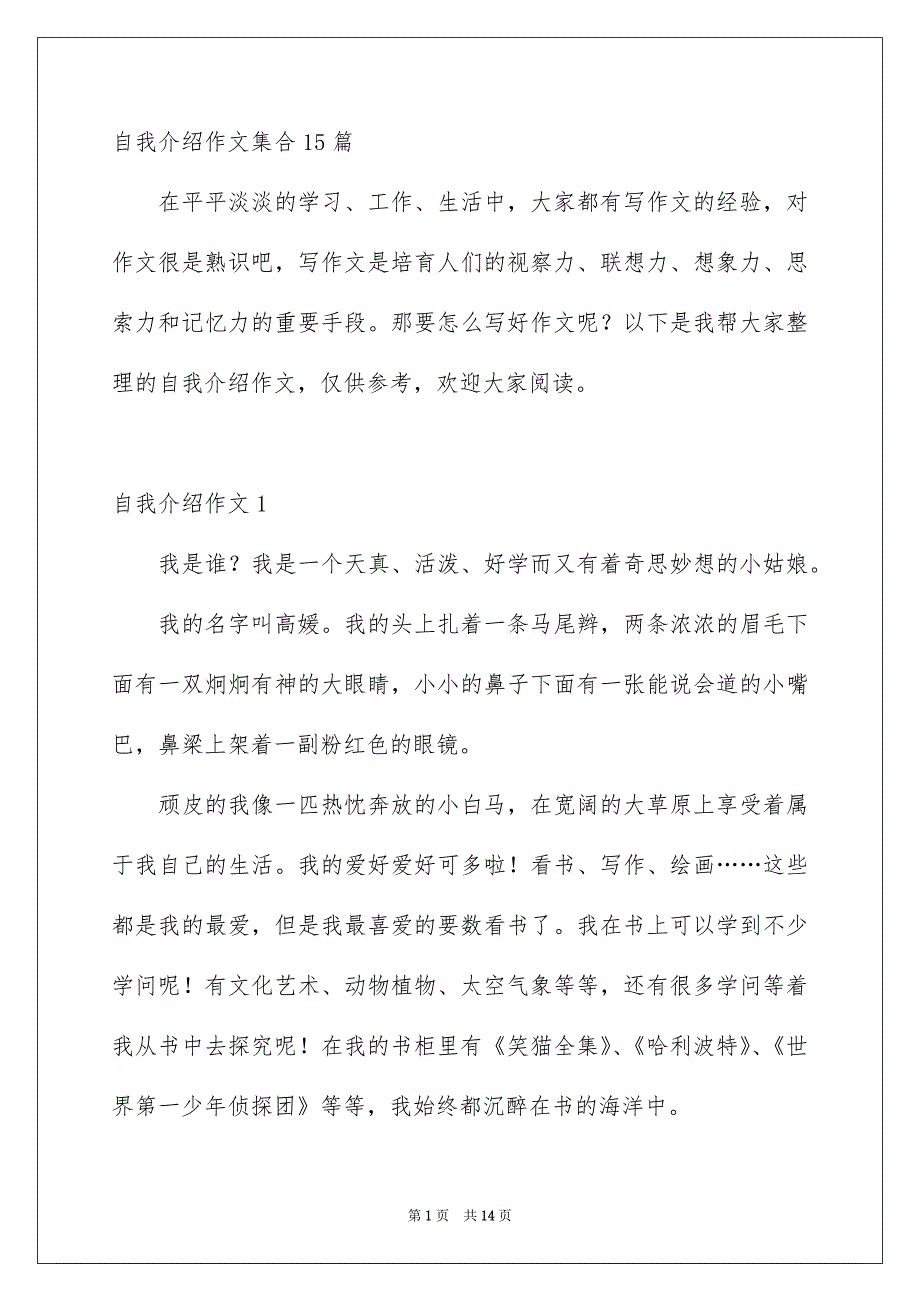 自我介绍作文集合 15 篇
在平平淡淡的学习、工作、生活中，大家都有写作文的经验，对
作文很是熟识吧，写作文是培育人们的视察力、联想力、想象力、思
索力和记忆力的重要手段。那要怎么写好作文呢？以下是我帮大家整
理的自我介绍作文，仅供参考，欢迎大家阅读。
自我介绍作文 1
我是谁？我是一个天真、活泼、好学而又有着奇思妙想的小姑娘。
我的名字叫高媛。我的头上扎着一条马尾辫，两条浓浓的眉毛下
面有一双炯炯有神的大眼睛，小小的鼻子下面有一张能说会道的小嘴
巴，鼻梁上架着一副粉红色的眼镜。
顽皮的我像一匹热忱奔放的小白马，在宽阔的大草原上享受着属
于我自己的生活。我的爱好爱好可多啦！看书、写作、绘画……这些
都是我的最爱，但是我最喜爱的要数看书了。我在书上可以学到不少
学问呢！有文化艺术、动物植物、太空气象等等，还有很多学问等着
我从书中去探究呢！在我的书柜里有《笑猫全集》、《哈利波特》、《世
界第一少年侦探团》等等，我始终都沉醉在书的海洋中。
第 1 页 共 14 页